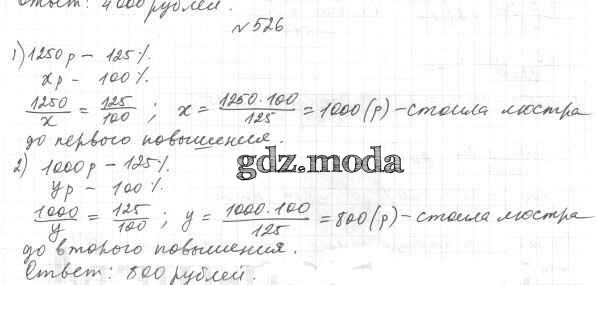 Ответ: 4000 рублей.
№526
1) 1250 р – 125%
x р – 100%.
1250/x = 125/100 ; x = 1250·100/125 = 1000 (р) – стоила люстра
до первого повышения.
2) 1000 р – 125%.
y р – 100%.
gdz.moda
1000/y = 125/100 ; y = 1000·100/125 = 800 (р) – стоила люстра
до второго повышения.
Ответ: 800 рублей.